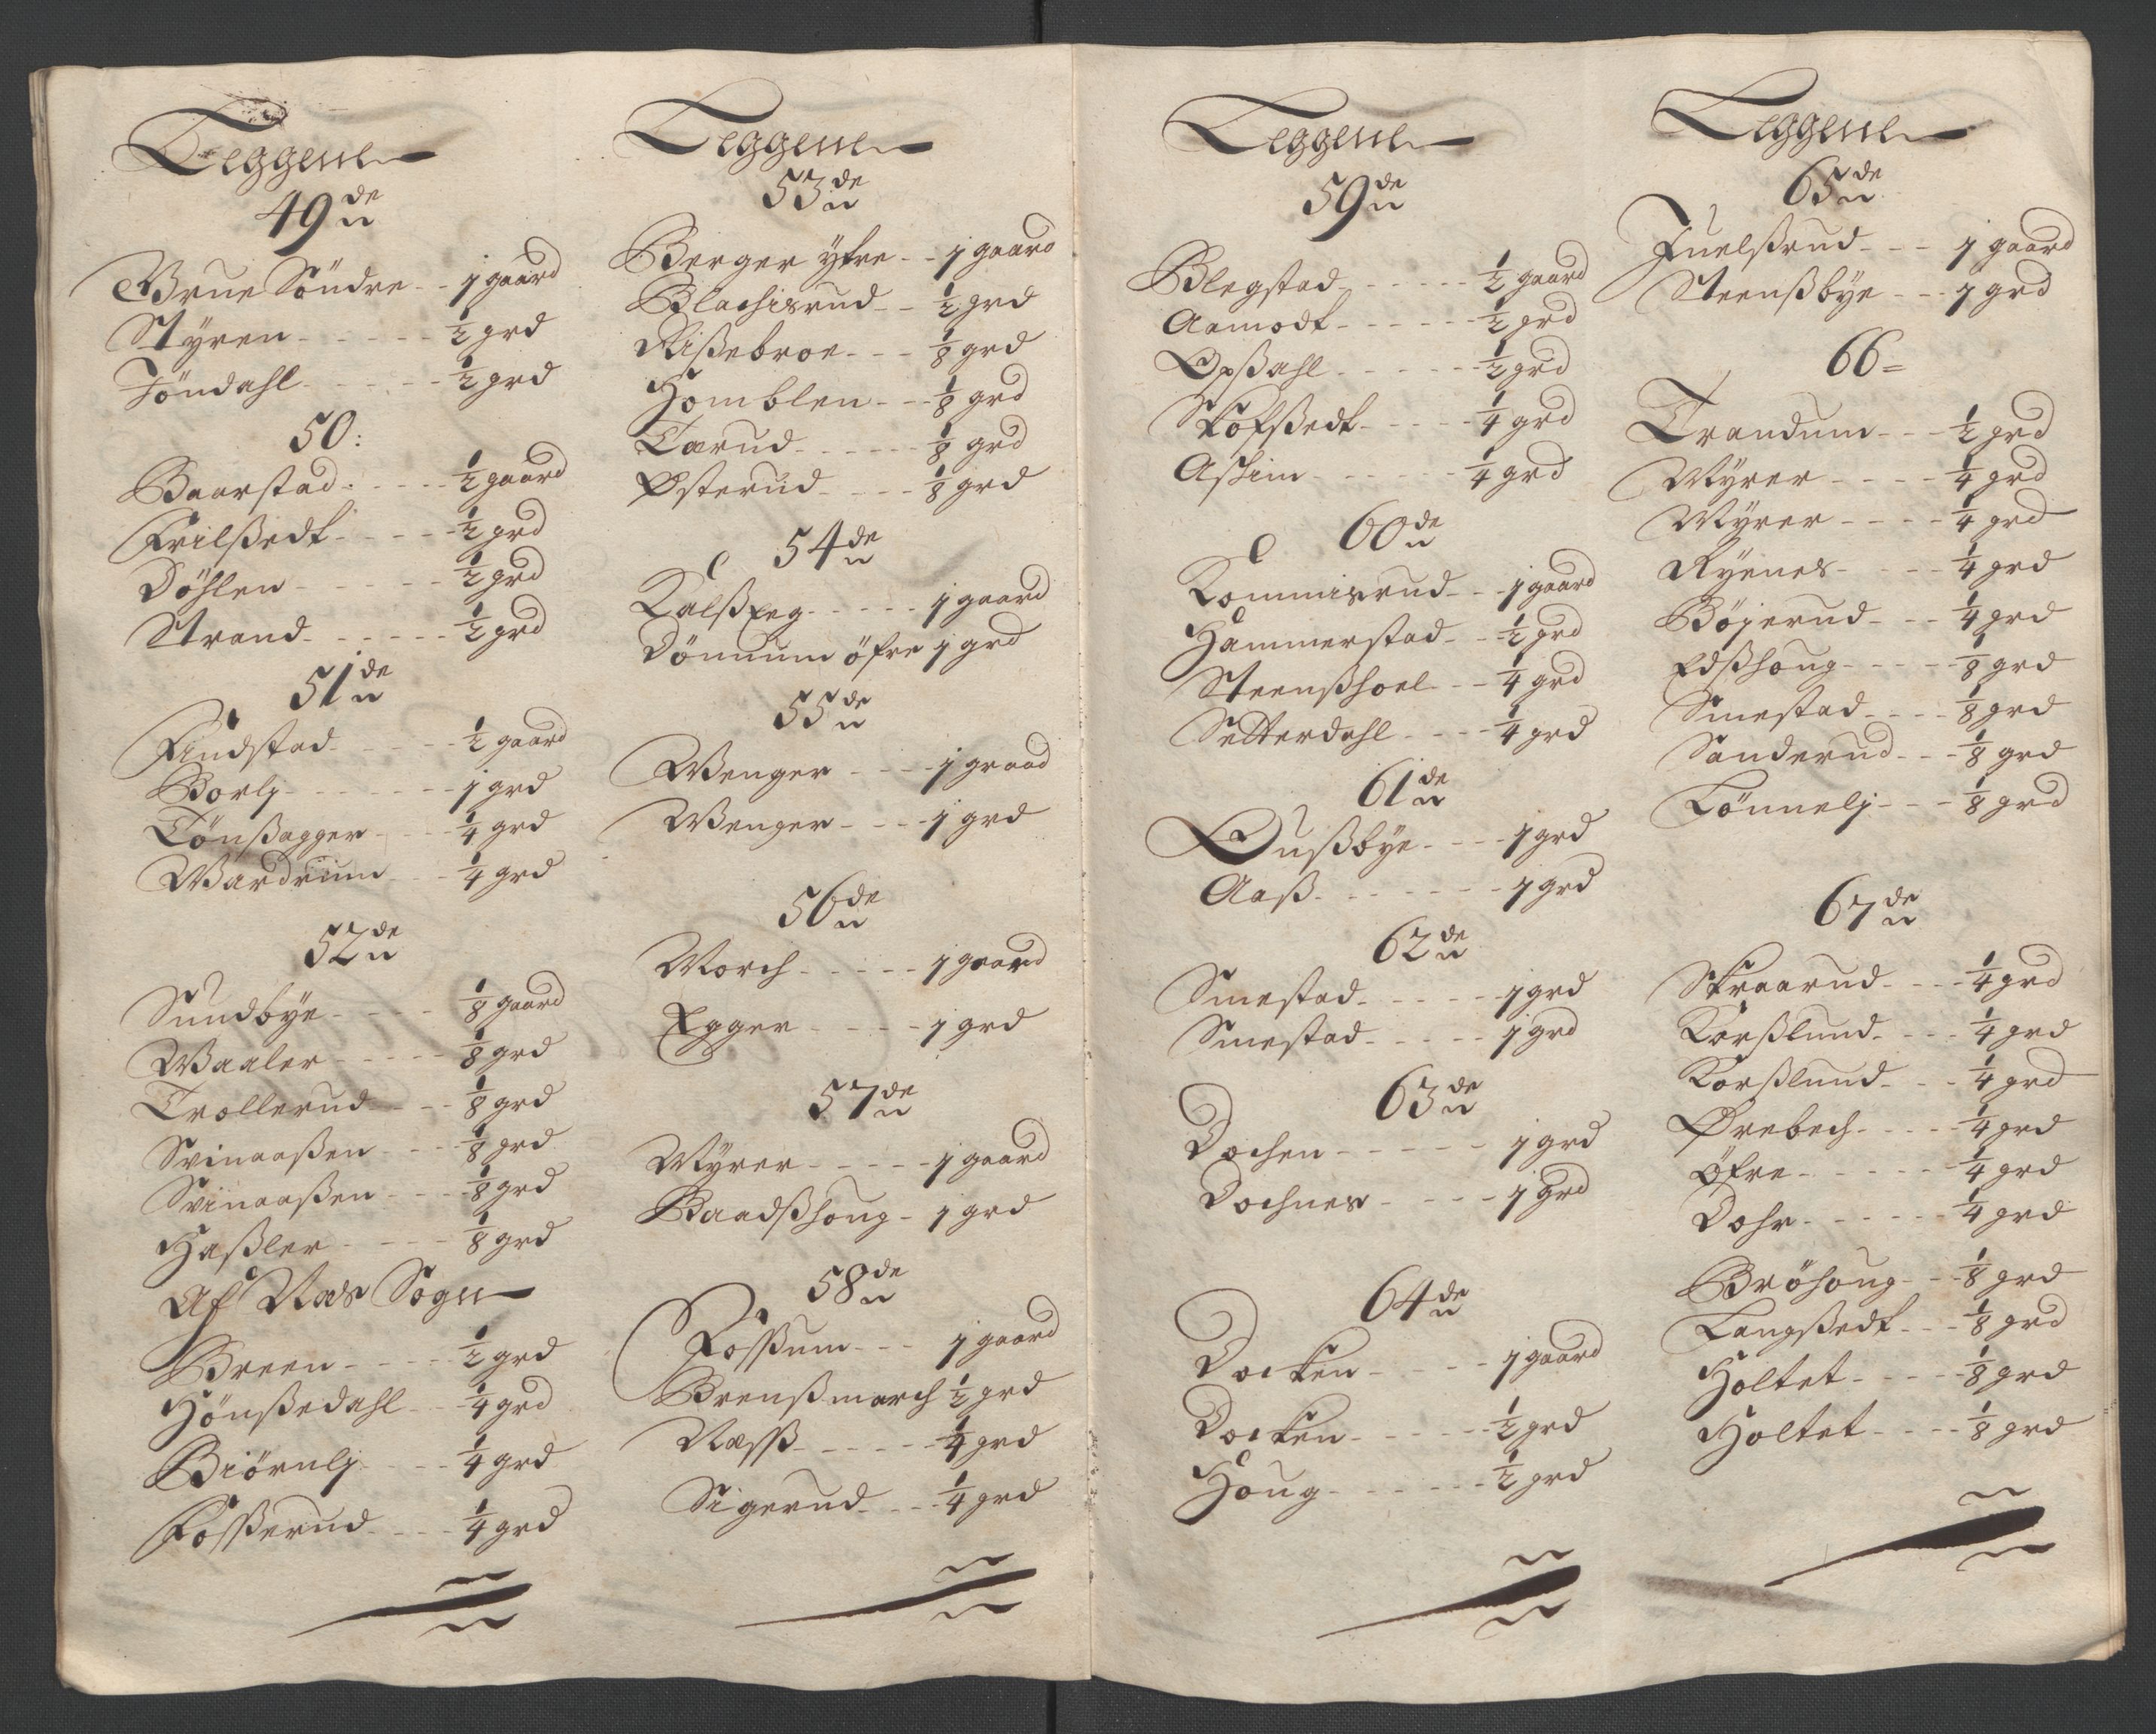 Leggene
49de
Brue Söndre - - 1 gaard
Styren - - - - - ½ grd
Töndahl - - - - - ½ grd
50:
Baarstad - - - - ½ gaard
Frilssedt - - - - ½ grd
Döhlen - - - - - ½ grd
Strand - - - - - ½ grd
51de
Findstad - - - - ½ gaard
Borlj - - - - - - 1 grd
Tönsagger - - - ¼ grd
Wardrum - - - ¼ grd
52de
Sundbye - - - - ⅛ gaard
Waaler - - - - - ⅛ grd
Trollerud - - - ⅛ grd
Svinaaßen - - - ⅛ grd
Svinaaßen - - - ⅛ grd
Haßler - - - - ⅛ grd
Af Næs Sogn
Breen - - - - ½ grd
Hönßedahl - - ¼ grd
Biörnlj - - - - ¼ grd
Fosserud - - - ¼ grd
Leggene
53de
Berger ytre - - 1 gaard
Blachisrud - - ½ grd
Rißebroe - - - ⅛ grd
Homblen - - ⅛ grd
Tærud - - - - - ⅛ grd
Østerud - - - - ⅛ grd
54de
Kalßeg - - - - - 1 gaard
Dönnum öfre 1 grd
55de
Wenger - - - - 1 graad
Wenger - - - - 1 grd
56de
Morch - - - - - 1 gaard
Egger - - - - - 1 grd
57de
Myrer - - - - - 1 gaard
Baadßhoug - 1 grd
58de
Fossum - - - 1 gaard
Brenßmarch ½ grd
Næss - - - - - ¼ grd
Sigerud - - - ¼ grd
Leggene
59de
Blegstad - - - - - ½ gaard
Aamodt - - - - - ½ grd
Opßahl - - - - - ½ grd
Tofsßedt - - - - ¼ grd
Askim - - - - - ¼ grd
60de
Kommisrud - - 1 gaard
Hammerstad - - ½ grd
Steenßhoel - - ¼ grd
Setterdahl - - - ¼ grd
61de
Oußbye - - - 1 grd
Aaß - - - - - - 1 grd
62de
Smestad - - - - - 1 grd
Smestad - - - - - 1 grd
63de
Dochen - - - - - 1 grd
Dochnes - - - - 1 grd
64de
Docken - - - - 1 gaard
Docken - - - - - ½ grd
Houg - - - - - - ½ grd
Leggene
65de
Juelßrud - - - 1 gaard
Steenßbye - - - 1 grd
66=
Trandum - - - ½ grd
Myrer - - - - ¼ grd
Myrer - - - - ¼ grd
Ryenes - - - - ¼ grd
Böjerud - - - ¼ grd
Edßhoug - - - - ⅛ grd
Smestad - - - - ⅛ grd
Sanderud - - - ⅛ grd
Lönnelj - - - ⅛ grd
67de
Skraarud - - - ¼ grd
Korßlund - - - ¼ grd
Korßlund - - - ¼ grd
Ørebech - - - - ¼ grd
Öfre - - - - - - ¼ grd
Dohr - - - - - ¼ grd
Bröhoug - - ⅛ grd
Langßedt - - - ⅛ grd
Holtet - - - - - ⅛ grd
Holtet - - - - ⅛ grd